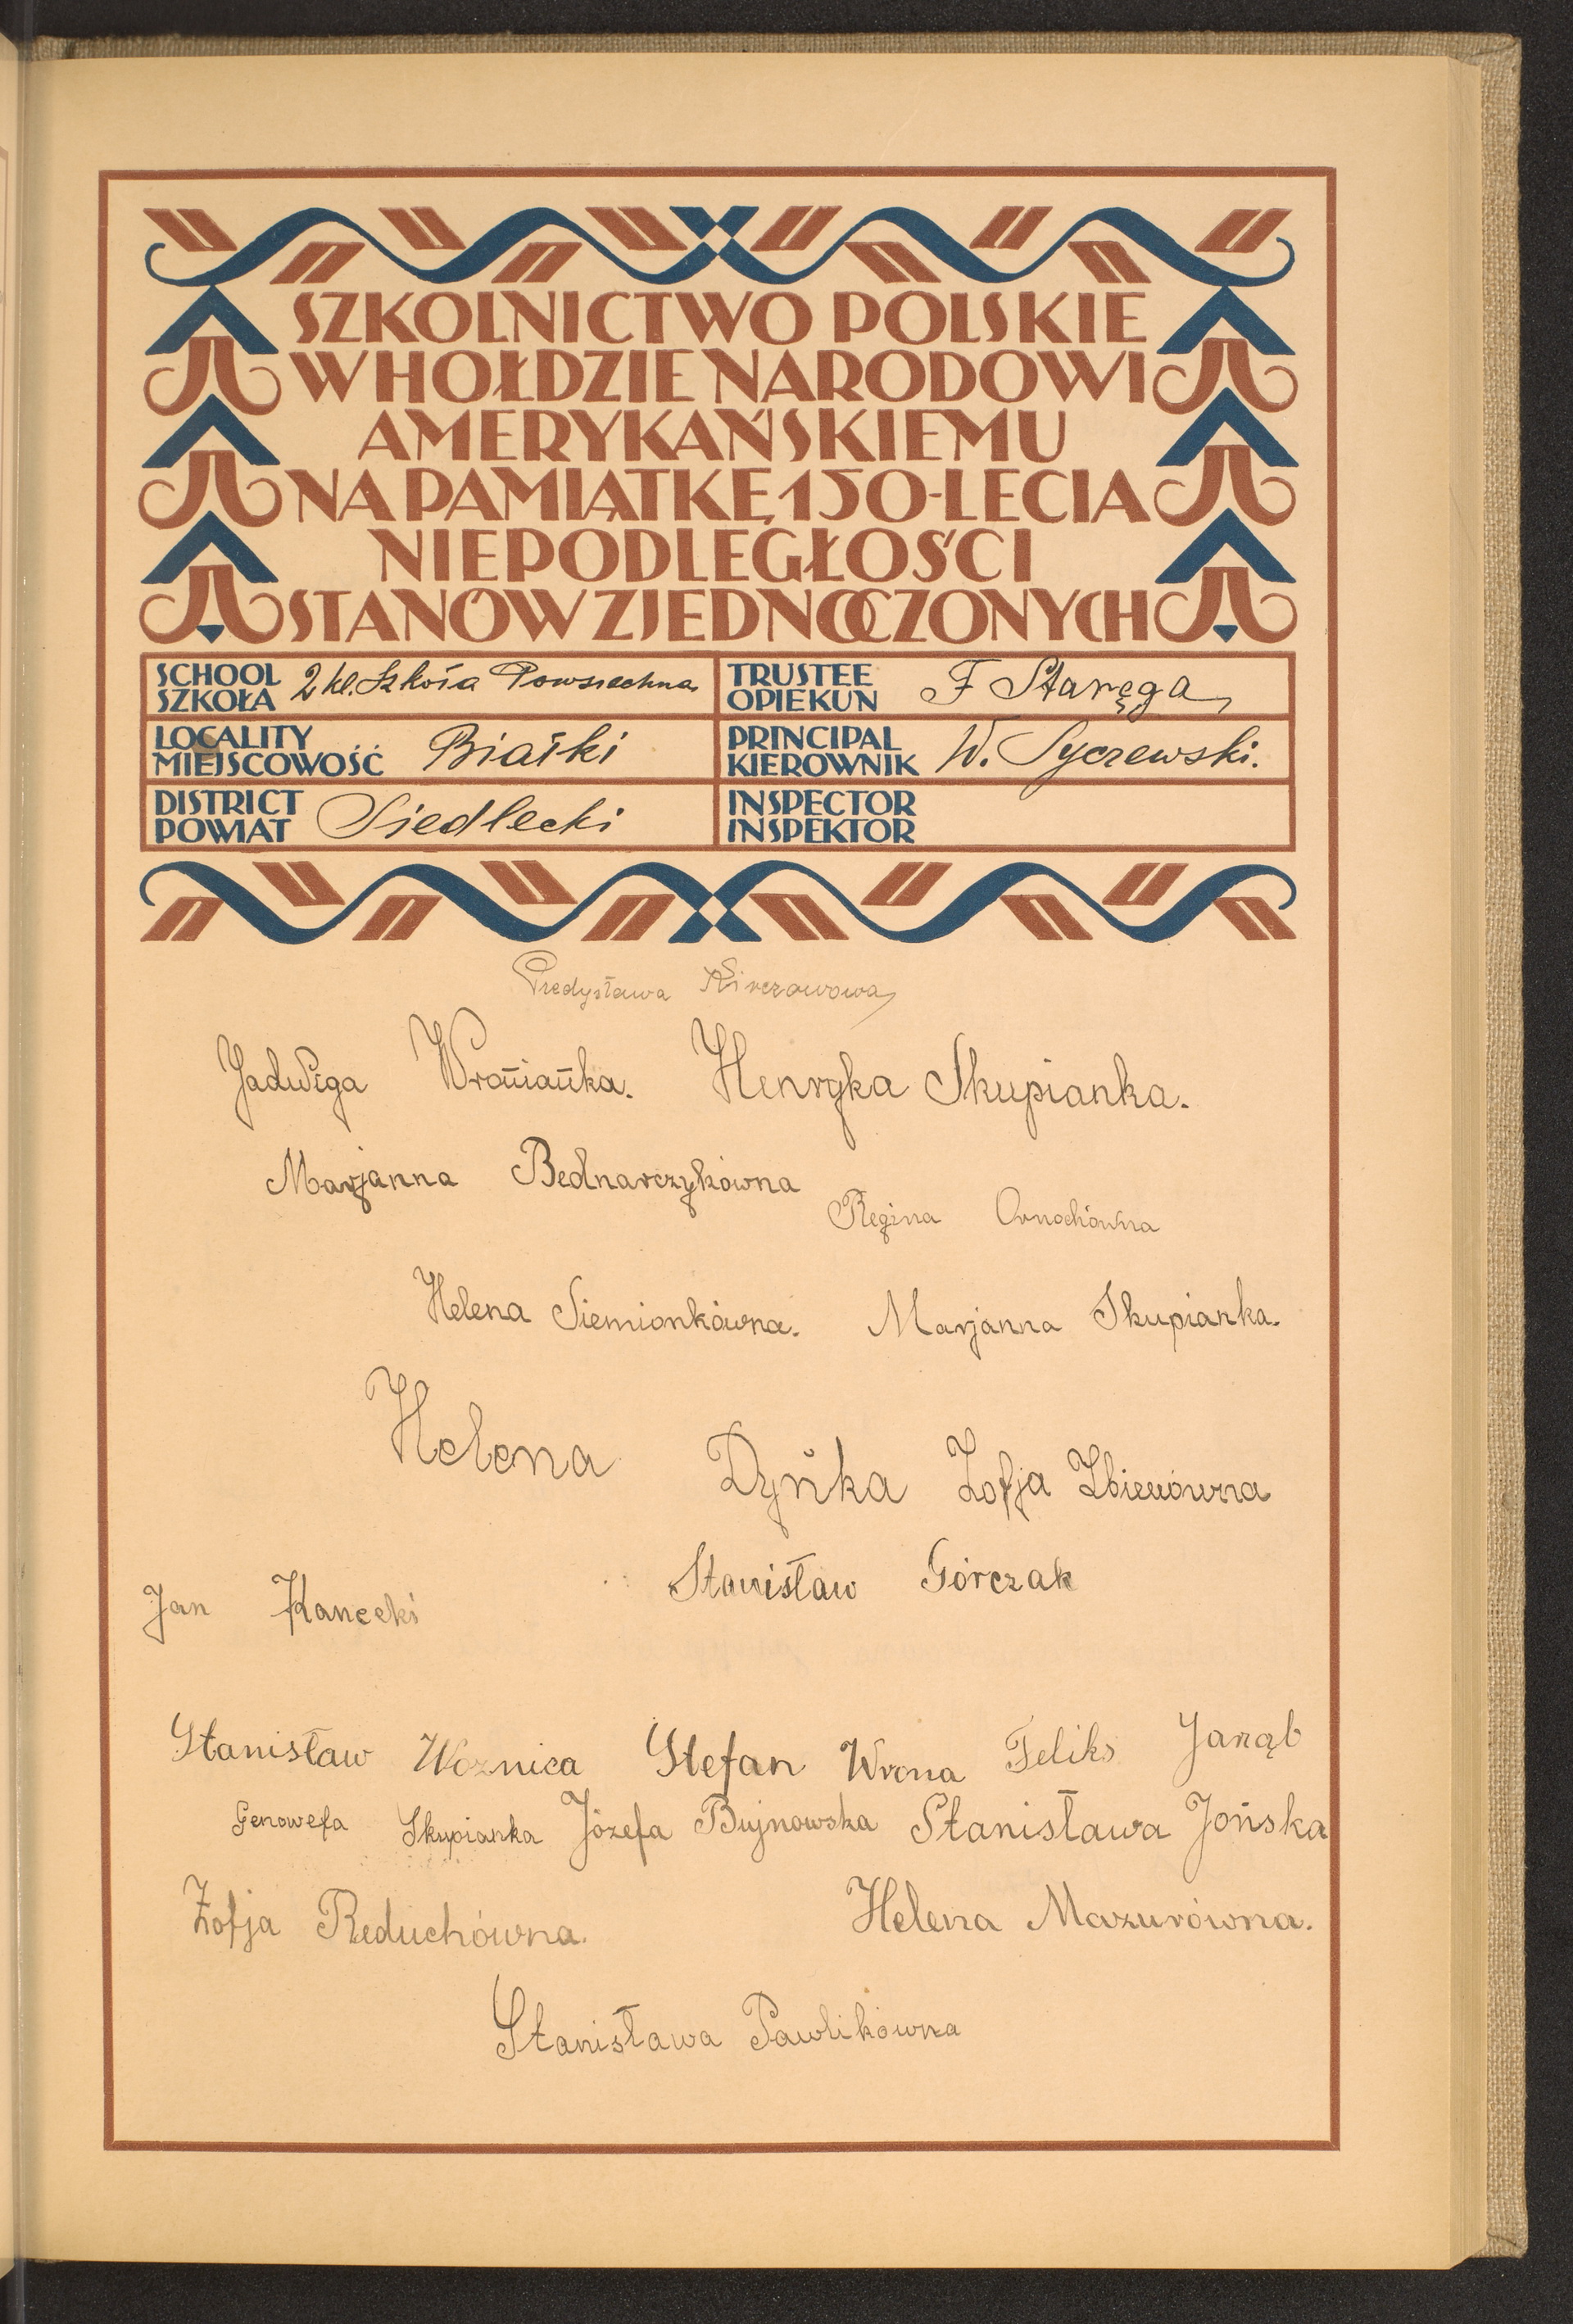 SZKOLNICTWO POLSKIE
W HOŁDZIE NARODOWI
AMERYKAŃSKIEMU
NA PAMIĄTKĘ 150-LECIA
NIEPODLEGŁOŚCI
STANÓW ZJEDNOCZONYCH
SCHOOL SZKOŁA 2 kl. Szkoła Powsiechna
TRUSTEE OPIEKUN F Staręga
LOCALITY MIEJSCOWOŚĆ Białki
PRINCIPAL KIEROWNIK W. Syczewski.
DISTRICT POWIAT Siedlecki
INSPECTOR INSPEKTOR
Jadwiga Wrońiańka. Henryka Skupianka.
Marjanna Bednarczykówna
Regina Ornochówna
Helena Siemionkówna. Marjanna Skupianka.
Helena Dyńka Zofja Zbieciówna
Stanisław Górczak
Jan Kanecki
Stanisław Woznica Stefan Wrona Feliks Jarząb
Genowefa Skupianka Józefa Bujnowska Stanisława Jońska
Zofja Reduchówna.
Helena Mazurówna.
Stanisława Pawlikówna